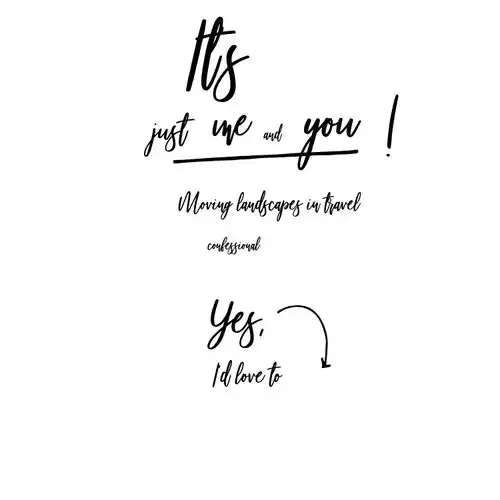 It's
just me and you !
Moving landscapes in travel
confessional
Yes,
I'd love to